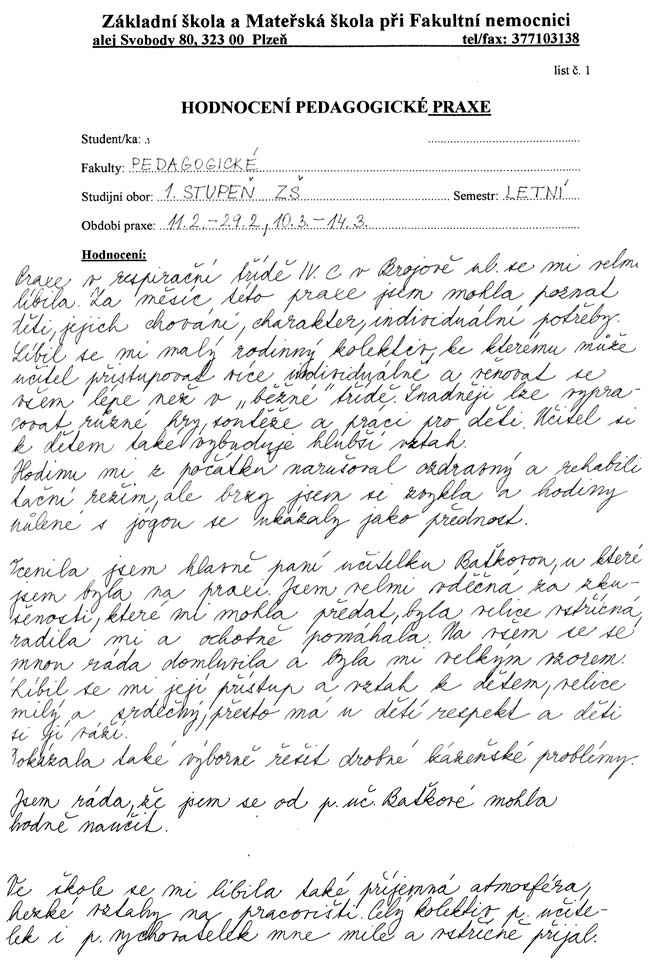 Základní škola a Mateřská škola při Fakultní nemocnici
alej Svobody 80, 323 00 Plzeň tel/fax: 377103138
list č. 1
HODNOCENÍ PEDAGOGICKÉ PRAXE
Student/ka:
Fakulty: PEDAGOGICKÉ
Studijní obor: 1. STUPEŇ ZŠ Semestr: LETNÍ
Období praxe: 11.2.–29.2, 10.3.–14.3.
Hodnocení:
Praxe v respirační třídě IV. C v Brojově ul. se mi velmi
líbila. Za měsíc této praxe jsem mohla poznat
děti, jejich chování, charakter, individuální potřeby.
Líbil se mi malý rodinný kolektiv, ke kterému může
učitel přistupovat více individuálně a věnovat se
všem lépe než v „běžné" třídě. Snadněji lze vypra-
covat různé hry, soutěže a práci pro děti. Učitel si
k dětem také vybuduje hlubší vztah.
Hodinu mi z počátku narušoval ozdravný a rehabili
tační režim, ale brzy jsem si zvykla a hodiny
s jógou se ukázaly jako přednost.
Ocenila jsem hlavně paní učitelku Baťkovou, u které
jsem byla na praxi. Jsem velmi vděčna za zku-
šenosti, které mi mohla předat, byla velice vstřícná,
radila mi a ochotně pomáhala. Na všem se se
mnou ráda domluvila a byla mi velkým vzorem.
Líbil se mi její přístup a vztah k dětem, velice
milý a srdečný, přesto má u dětí respekt a děti
si jí váží.
Dokázala také výborně řešit drobné kázeňské problémy.
Jsem ráda, že jsem se od p. uč. Baťkové mohla
hodně naučit.
Ve škole se mi líbila také příjemná atmosféra,
hezké vztahy na pracovišti. Celý kolektiv p. učite-
lek i p. vychovatelek mne mile a vstřícně přijal.